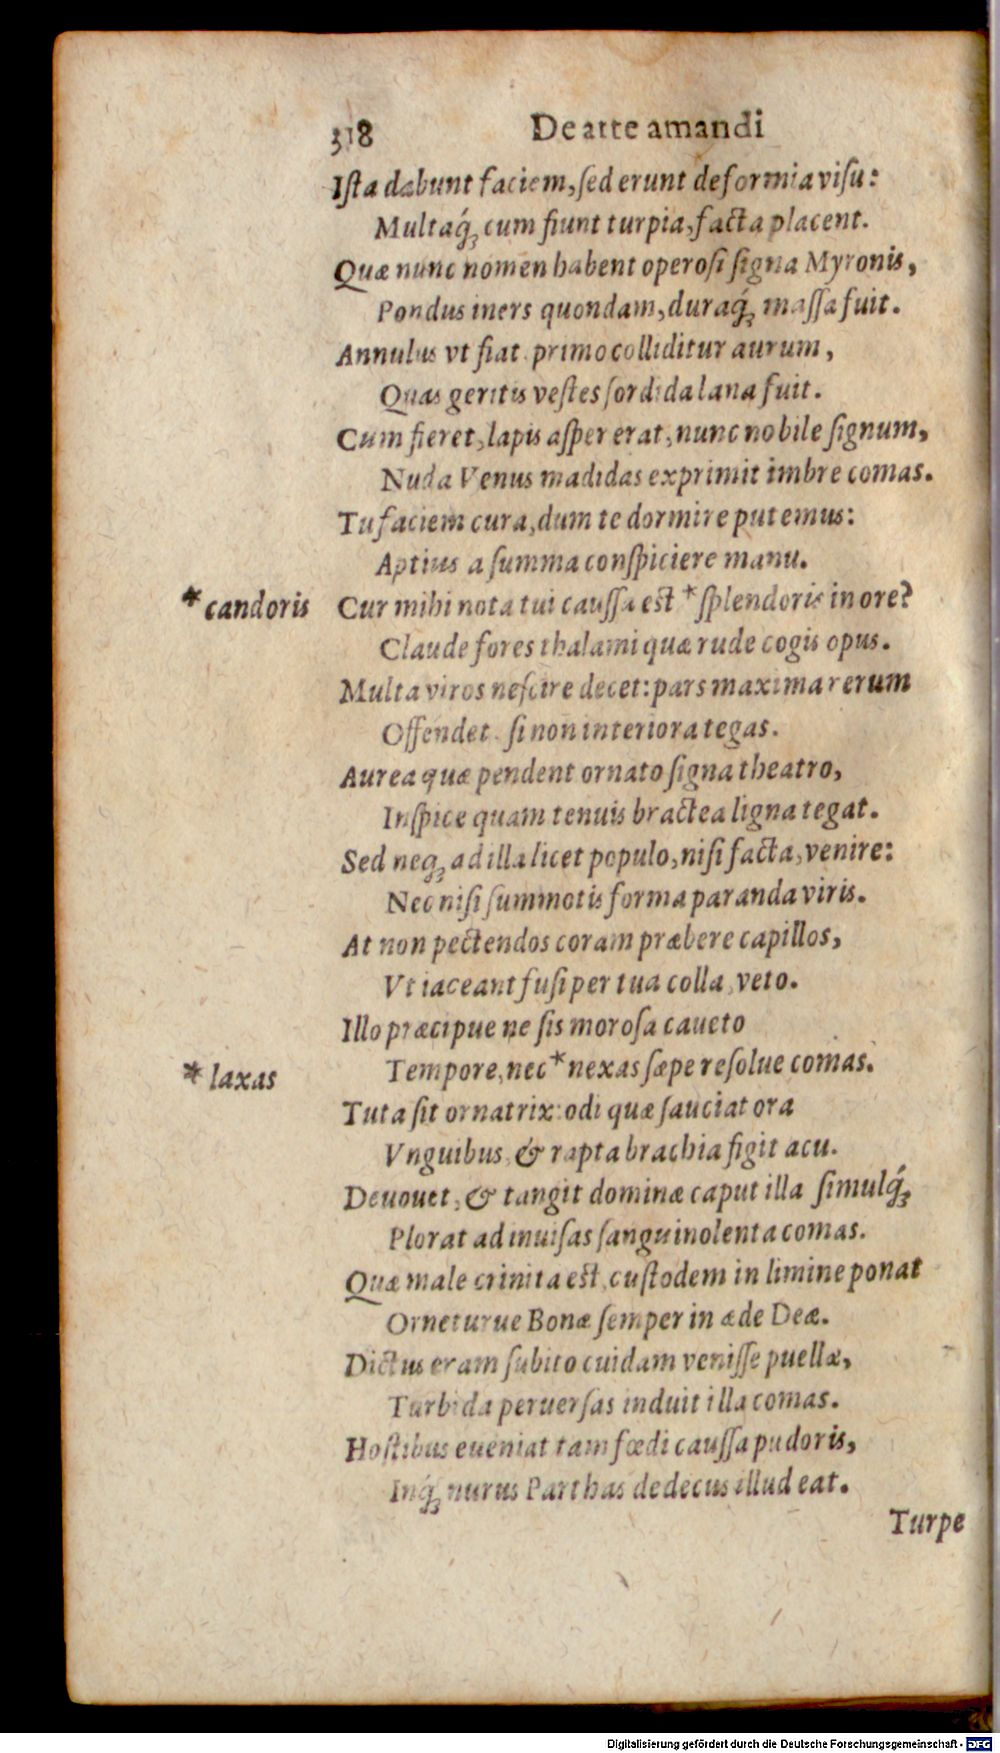 318 De arte amandi
Iſta dabunt faciem, ſed erunt deformia viſu:
Multaq́ꝫ cum fiunt turpia, facta placent.
Quæ nunc nomen habent operoſi ſigna Myronis,
Pondus iners quondam, duraq́ꝫ maſſa fuit.
Annulus vt fiat primo colliditur aurum,
Quas geritis veſtes ſordida lana fuit.
Cum fieret, lapis aſper erat, nunc nobile ſignum,
Nuda Venus madidas exprimit imbre comas.
Tu faciem cura, dum te dormire putemus:
Aptius a ſumma conſpiciere manu.
*candoris Cur mihi nota tui cauſſa est *ſplendoris in ore?
Claude fores thalami quæ rude cogis opus.
Multa viros neſcire decet: pars maxima rerum
Offendet ſi non interiora tegas.
Aurea quæ pendent ornato ſigna theatro,
Inſpice quam tenuis bractea ligna tegat.
Sed neqꝫ ad illa licet populo, niſi facta, venire:
Nec niſi ſummotis forma paranda viris.
At non pectendos coram præbere capillos,
Vt iaceant fuſi per tua colla, veto.
Illo præcipue ne ſis moroſa caueto
*laxas Tempore, nec *nexas ſæpe reſolue comas.
Tuta ſit ornatrix: odi quæ ſauciat ora
Vnguibus, & rapta brachia figit acu.
Deuouet, & tangit dominæ caput illa ſimulq́ꝫ
Plorat ad inuiſas ſanguinolenta comas.
Quæ male crinita est, cuſtodem in limine ponat
Orneturue Bonæ ſemper in æde Deæ.
Dictus eram ſubito cuidam veniſſe puellæ,
Turbida peruerſas induit illa comas.
Hoſtibus eueniat tam fœdi cauſſa pudoris,
Inq́ꝫ nurus Parthas dedecus illud eat.
Turpe
Digitalisierung gefördert durch die Deutsche Forschungsgemeinschaft - DFG